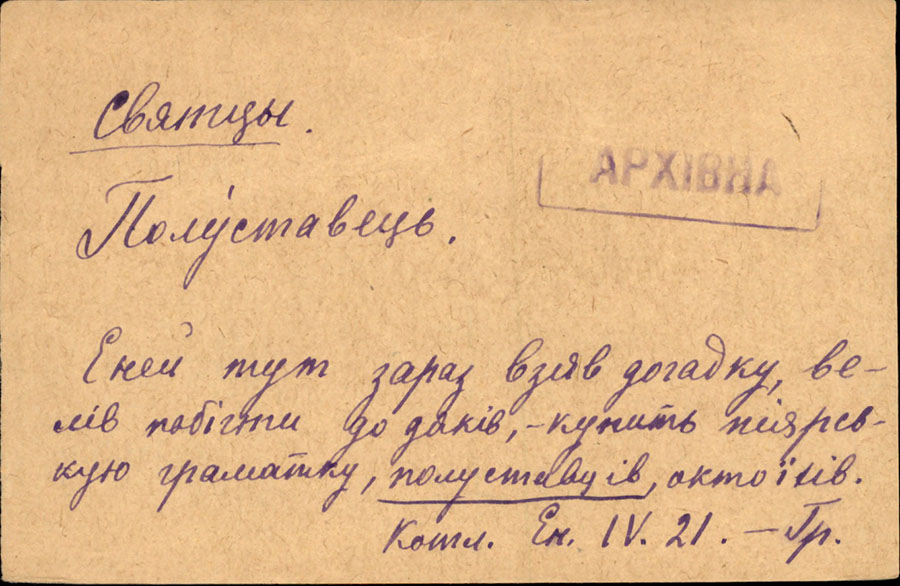 Святцы.
АРХІВНА
Полу́ставець.
Еней тут зараз взяв догадку, ве-
лів побігти до дяків, – купить піярсь-
кую граматку, полуставців, октоїхів.
Котл. Ен. IV. 21. – Гр.